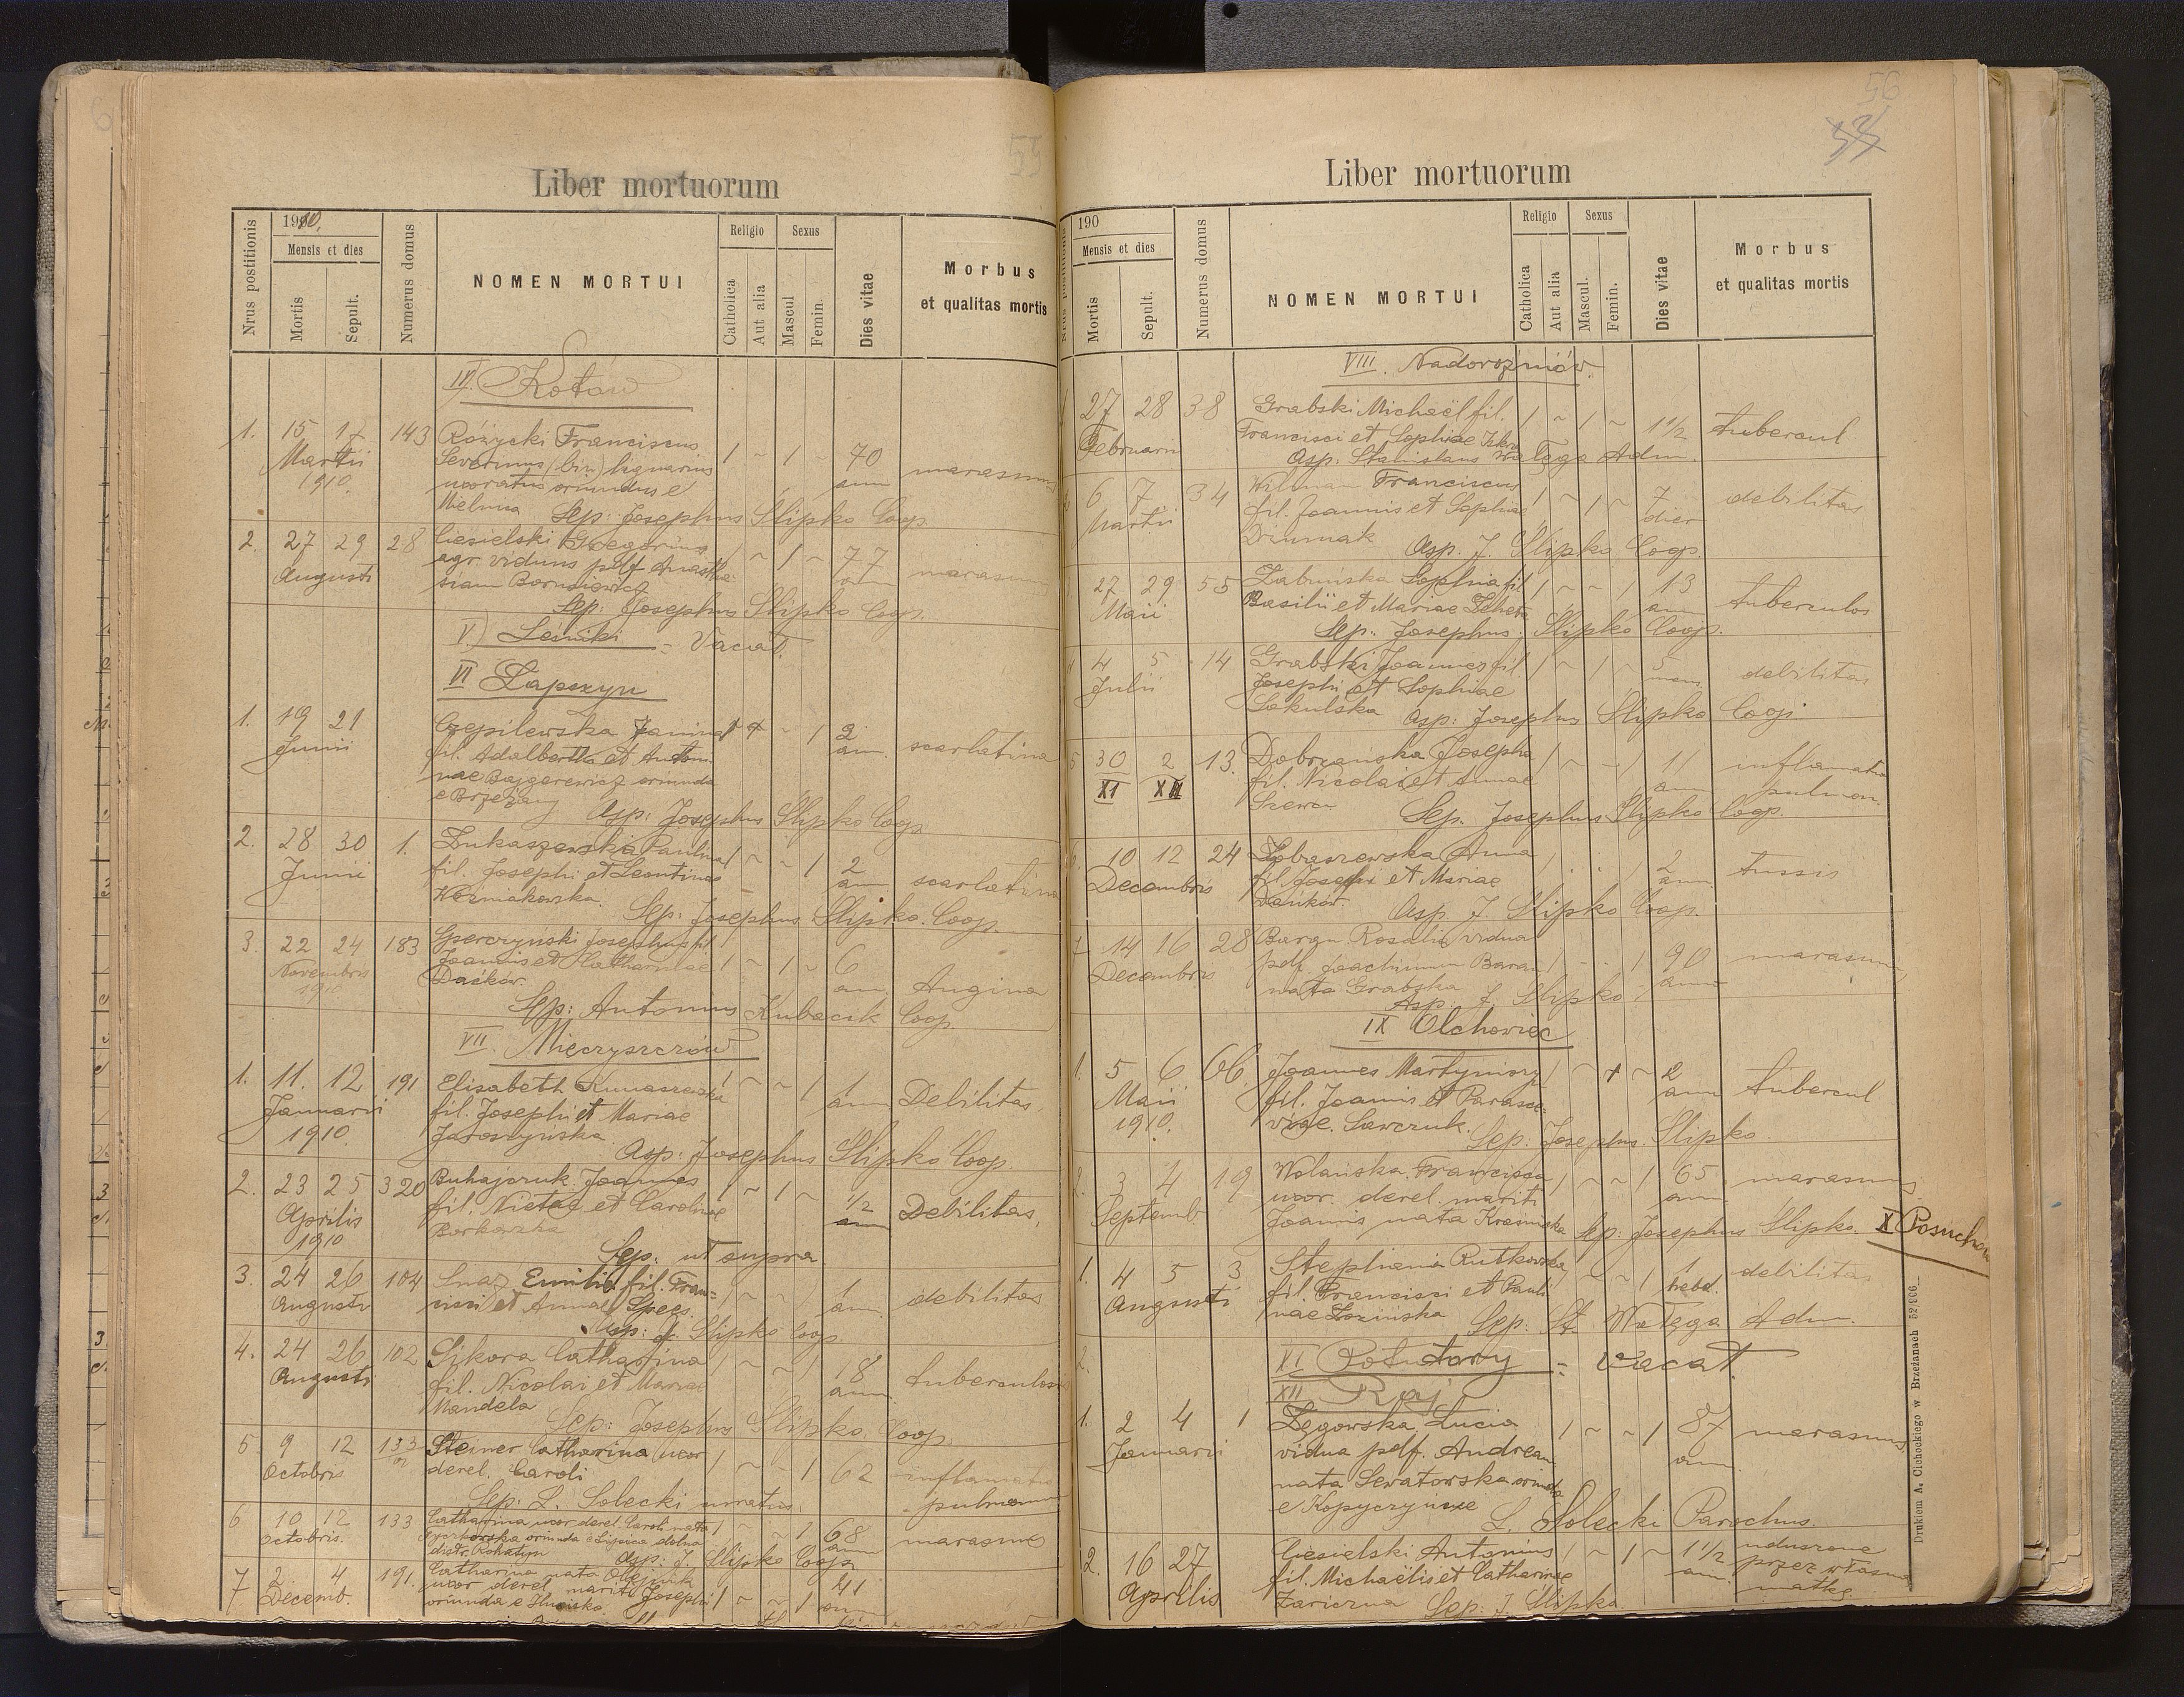 55
Liber mortuorum
Nrus postitionis
1910.
Mensis et dies
Mortis
Sepult.
Numerus domus
NOMEN MORTUI
Religio
Catholica
Aut alia
Sexus
Mascul
Femin
Dies vitae
Morbus
et qualitas mortis
IV. Kotów
1. 15 17 143 Różycki Franciscus 1 ~ 1 ~ 70 marasmus
Martii Severinus (bin.) lignarius ann
1910. uxoratus oriundus e
Mielnica Sep: Josephus Slipko Coop.
2. 27 29 28 Ciesielski Gregorius 1 ~ 1 ~ 77 marasmus
Augusti agr. viduus pdf. Anasta-
siam
Sep: Josephus Slipko Coop.
V.) Leśniki = Vacat.
VI Łapszyn
1. 19 21 Czepilewska Janina 1 ~ ~ 1 2 scarlatina
Junii fil. Adalberti et Antoni- ann
nae Bajgerewicz oriunda
e Brzeżany Asp: Josephus Slipko Coop.
2. 28 30 1. Łukaszewska Paulina 1 ~ ~ 1 2 scarlatina
Junii fil. Josephi et Leontinae ann
Woźniakowska. Sep: Josephus Slipko. Coop.
3. 22 24 183 Josephus fil. 1 ~ 1 ~ 6 Angina
Novembris Joannis et Catharinae ann
1910 Daćków
Sep: Antonius Kubacik Coop.
VII. Mieczyszczów
1. 11. 12 191 Elisabeth 1 ~ ~ 1 1 Debilitas,
Januarii fil. Josephi et Mariae ann
1910. Jaroszyńska.
Asp: Josephus Slipko Coop.
2. 23 25 320 Buhajczuk Joannes 1 ~ 1 ~ 1/2 Debilitas,
Aprilis fil. et Carolinae ann
1910
Sep: ut supra
3. 24 26 104 Emilia fil. Fran= 1 ~ ~ 1 1 debilitas
Augusti cisci et Annae Spees ann
Asp: J. Slipko Coop.
4. 24 26 102 Sikora Catharina 1 ~ ~ 1 18 tuberculos
Augusti fil. Nicolai et Mariae ann
Mandela
Sep: Josephus Slipko, Coop.
5. 9 12 133 Steiner Catharina (uxor 1 ~ ~ 1 62 inflamatio
Octobris derel. Caroli pulmonum
Sep: L. Solecki
6 10 12 133 Catharina uxor derel. Caroli nata 1 ~ ~ 1 68 marasmus
Octobris. oriunda e Lipica dolna ann
distr. Rohatyn Asp: J. Slipko Coop
7 2 4 191. Catharina nata Olejnik 1 ~ ~ 1 41
Decemb. uxor derel. mariti Josephi ann
oriunda e
56
Liber mortuorum
Nrus positionis
190
Mensis et dies
Mortis
Sepult.
Numerus domus
NOMEN MORTUI
Religio
Catholica
Aut alia
Sexus
Mascul.
Femin.
Dies vitae
Morbus
et qualitas mortis
VIII. Nadorożniów.
1 27 28 38 Grabski Michaël fil. 1 ~ 1 ~ 1 1/2 tubercul
Februarii Francisci et Sophiae
Asp. Stanislaus Wałęga Adm.
6 7 34 Franciscus 1 ~ 1 ~ 7 debilitas
Martii fil. Joannis et Sophiae dier
Asp. J. Slipko Coop.
27 29 55 Sophia fil 1 ~ ~ 1 13 tuberculos
Maii Basilii et Mariae ann
Sep: Josephus Slipko Coop.
4 4 5 14 Grabski Joannes fil 1 ~ 1 ~ 5 debilitas
Julii Josephi et Sophiae mens
Sokulska Asp: Josephus Slipko Coop.
5 30 2 13. Dobrzańska Josepha 1 ~ ~ 1 11 inflamatio
XI XII fil. Nicolai et Annae ann pulmon.
Sep. Josephus Slipko Coop.
6. 10 12 24 Anna 1 2 tussis
Decembris fil Josephi et Mariae ann.
Daćków. Asp J. Slipko Coop.
7 14 16 28 Baran Rosalia vidua 1 90 marasmus
Decembris pdf. Joachimum Baran ann
nata Grabska
Asp. J. Slipko
IX Olchowiec
1. 5 6 66 Joannes Martyniszyn 1 ~ + ~ 2 tubercul
Maii fil. Joannis et Parasce= ann
1910. viae Sawczuk. Sep: Josephus Slipko.
2. 3 4 19 Wolańska Francisca 1 ~ ~ 1 65 marasmus
Septemb. uxor. derel. mariti ann
Joannis nata Sep: Josephus Slipko.
X Posuchów
1. 4 5 3 Stephania Rutkowska 1 ~ ~ 1 1 debilitas
Augusti fil. Francisci et Pauli- hebd.
nae Łozińska Sep: St. Wałęga Adm.
2.
XI Potutory = Vacat
XII Raj
1. 2 4 1 Zegowska Lucia 1 ~ ~ 1 87 marasmus
Januarii vidua pdf. Andream ann
nata oriunda
e Kopyczyńce
L. Solecki Parochus.
2. 16 27 Ciesielski Antonius 1 ~ 1 ~ 1 1/2 uduszone
Aprilis fil. Michaelis et Catharinae an. przez własną
Zariczna Sep: J. Slipko. matkę.
Drukiem A. Cichockiego w Brzeżanach 52/906